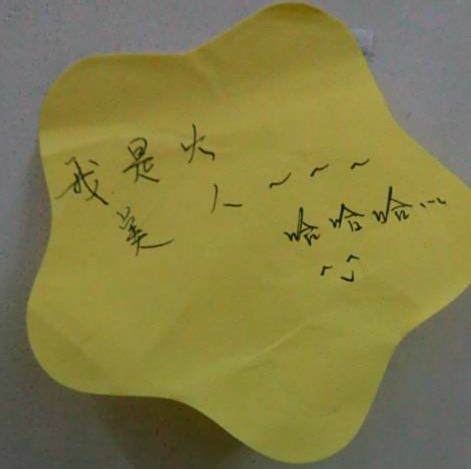 我是火
美人~~~
哈哈哈…